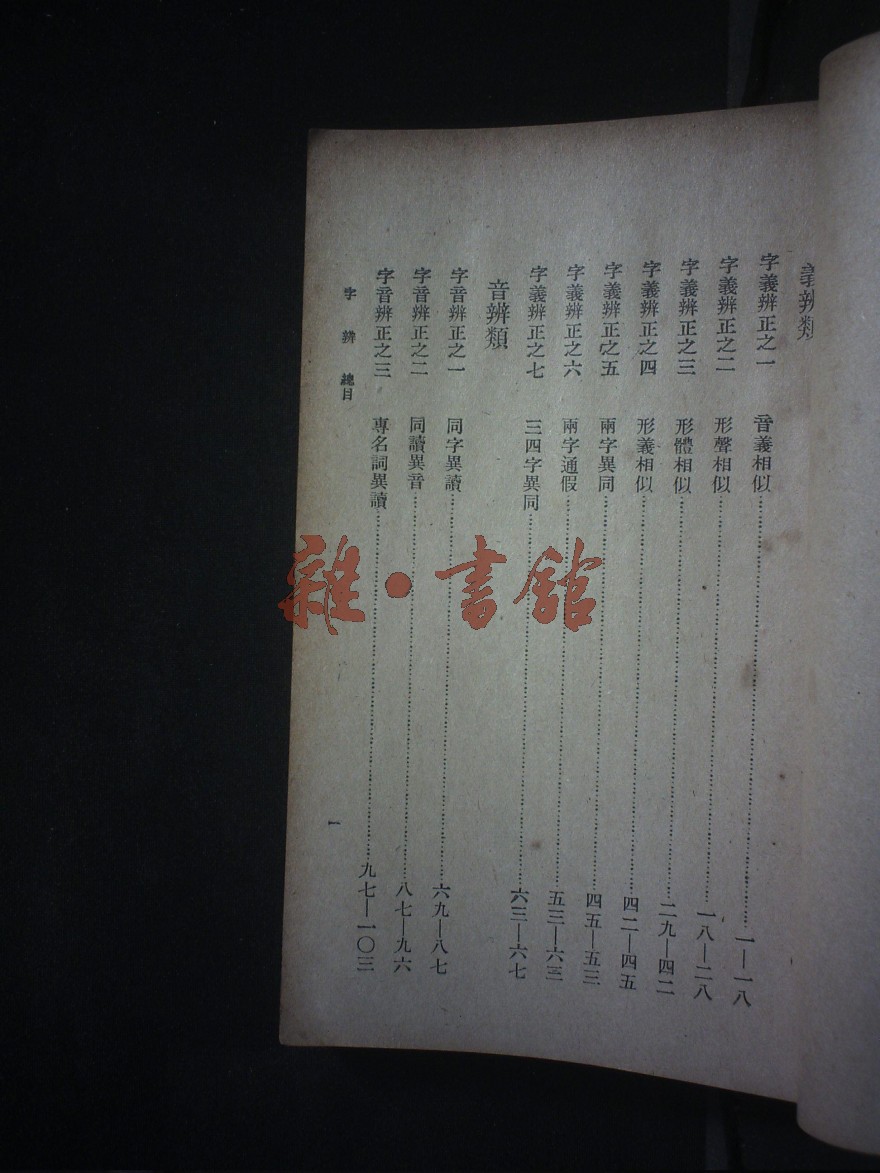 義辨類
字義辨正之一 音義相似 一—一八
字義辨正之二 形聲相似 一八—二八
字義辨正之三 形體相似 二九—四二
字義辨正之四 形義相似 四二—四五
字義辨正之五 兩字異同 四五—五三
字義辨正之六 兩字通假 五三—六三
字義辨正之七 三四字異同 六三—六七
音辨類
字音辨正之一 同字異讀 六九—八七
字音辨正之二 同讀異音 八七—九六
字音辨正之三 專名詞異讀 九七—一〇三
字辨 總目
一
雜·書館